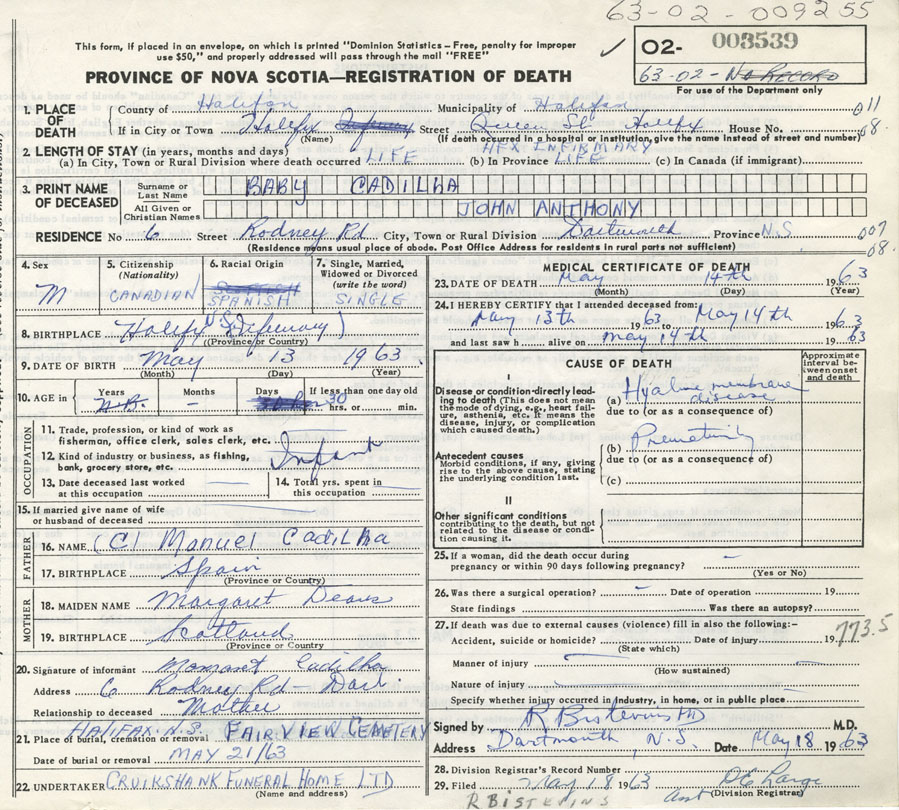 63-02-009255
This form, if placed in an envelope, on which is printed "Dominion Statistics – Free, penalty for improper
use $50," and properly addressed will pass through the mail "FREE"
02- 003539
63-02- No Record
For use of the Department only
PROVINCE OF NOVA SCOTIA—REGISTRATION OF DEATH
1. PLACE OF DEATH
County of Halifax Municipality of Halifax 011
If in City or Town Halifax Infirmary Street Queen St. Halifax House No. 08.
(Name) (If death occurred in a hospital or institution, give the name instead of street and number)
HFX INFIRMARY
2. LENGTH OF STAY (in years, months and days)
(a) In City, Town or Rural Division where death occurred LIFE (b) In Province LIFE (c) In Canada (if immigrant)
3. PRINT NAME OF DECEASED
Surname or Last Name BABY CADILHA
All Given or Christian Names JOHN ANTHONY
RESIDENCE No 6 Street Rodney Rd City, Town or Rural Division Dartmouth Province N.S 007
(Residence means usual place of abode. Post Office Address for residents in rural parts not sufficient) 08.
4. Sex
M
5. Citizenship (Nationality)
CANADIAN
6. Racial Origin
SPANISH
7. Single, Married, Widowed or Divorced (write the word)
SINGLE
8. BIRTHPLACE Halifax N.S. (Infirmary)
(Province or Country)
9. DATE OF BIRTH May 13 1963
(Month) (Day) (Year)
10. AGE in Years Months Days If less than one day old
– 30 hrs. or min.
OCCUPATION
11. Trade, profession, or kind of work as
fisherman, office clerk, sales clerk, etc.
12. Kind of industry or business, as fishing,
bank, grocery store, etc. Infant
13. Date deceased last worked
at this occupation
14. Total yrs. spent in
this occupation
15. If married give name of wife
or husband of deceased
FATHER
16. NAME (C) Manuel Cadilha
17. BIRTHPLACE Spain
(Province or Country)
MOTHER
18. MAIDEN NAME Margaret Deans
19. BIRTHPLACE Scotland
(Province or Country)
20. Signature of informant Margaret Cadilha
Address 6 Rodney Rd – Dart.
Relationship to deceased Mother
HALIFAX. N.S.
21. Place of burial, cremation or removal FAIRVIEW CEMETERY
Date of burial or removal MAY 21/63
22. UNDERTAKER CRUIKSHANK FUNERAL HOME LTD
(Name and address)
MEDICAL CERTIFICATE OF DEATH
23. DATE OF DEATH May 14th 1963
(Month) (Day) (Year)
24. I HEREBY CERTIFY that I attended deceased from:
May 13th 1963 to May 14th 1963
and last saw h alive on May 14th 1963
CAUSE OF DEATH
Approximate interval between onset and death
I
Disease or condition directly leading to death (This does not mean the mode of dying, e.g., heart failure, asthenia, etc. It means the disease, injury, or complication which caused death.)
(a) Hyaline membrane disease
due to (or as a consequence of)
Antecedent causes
Morbid conditions, if any, giving rise to the above cause, stating the underlying condition last.
(b) Prematurity
due to (or as a consequence of)
(c)
II
Other significant conditions
contributing to the death, but not related to the disease or condition causing it.
25. If a woman, did the death occur during
pregnancy or within 90 days following pregnancy? –
(Yes or No)
26. Was there a surgical operation? – Date of operation 19
State findings Was there an autopsy?
27. If death was due to external causes (violence) fill in also the following:–
Accident, suicide or homicide? Date of injury 19 773.5
(State which)
Manner of injury
(How sustained)
Nature of injury
Specify whether injury occurred in industry, in home, or in public place
Signed by M.D.
Address Dartmouth, N.S. Date May 18 1963
28. Division Registrar's Record Number
29. Filed May 18 1963
(Division Registrar)
R BISTERINS